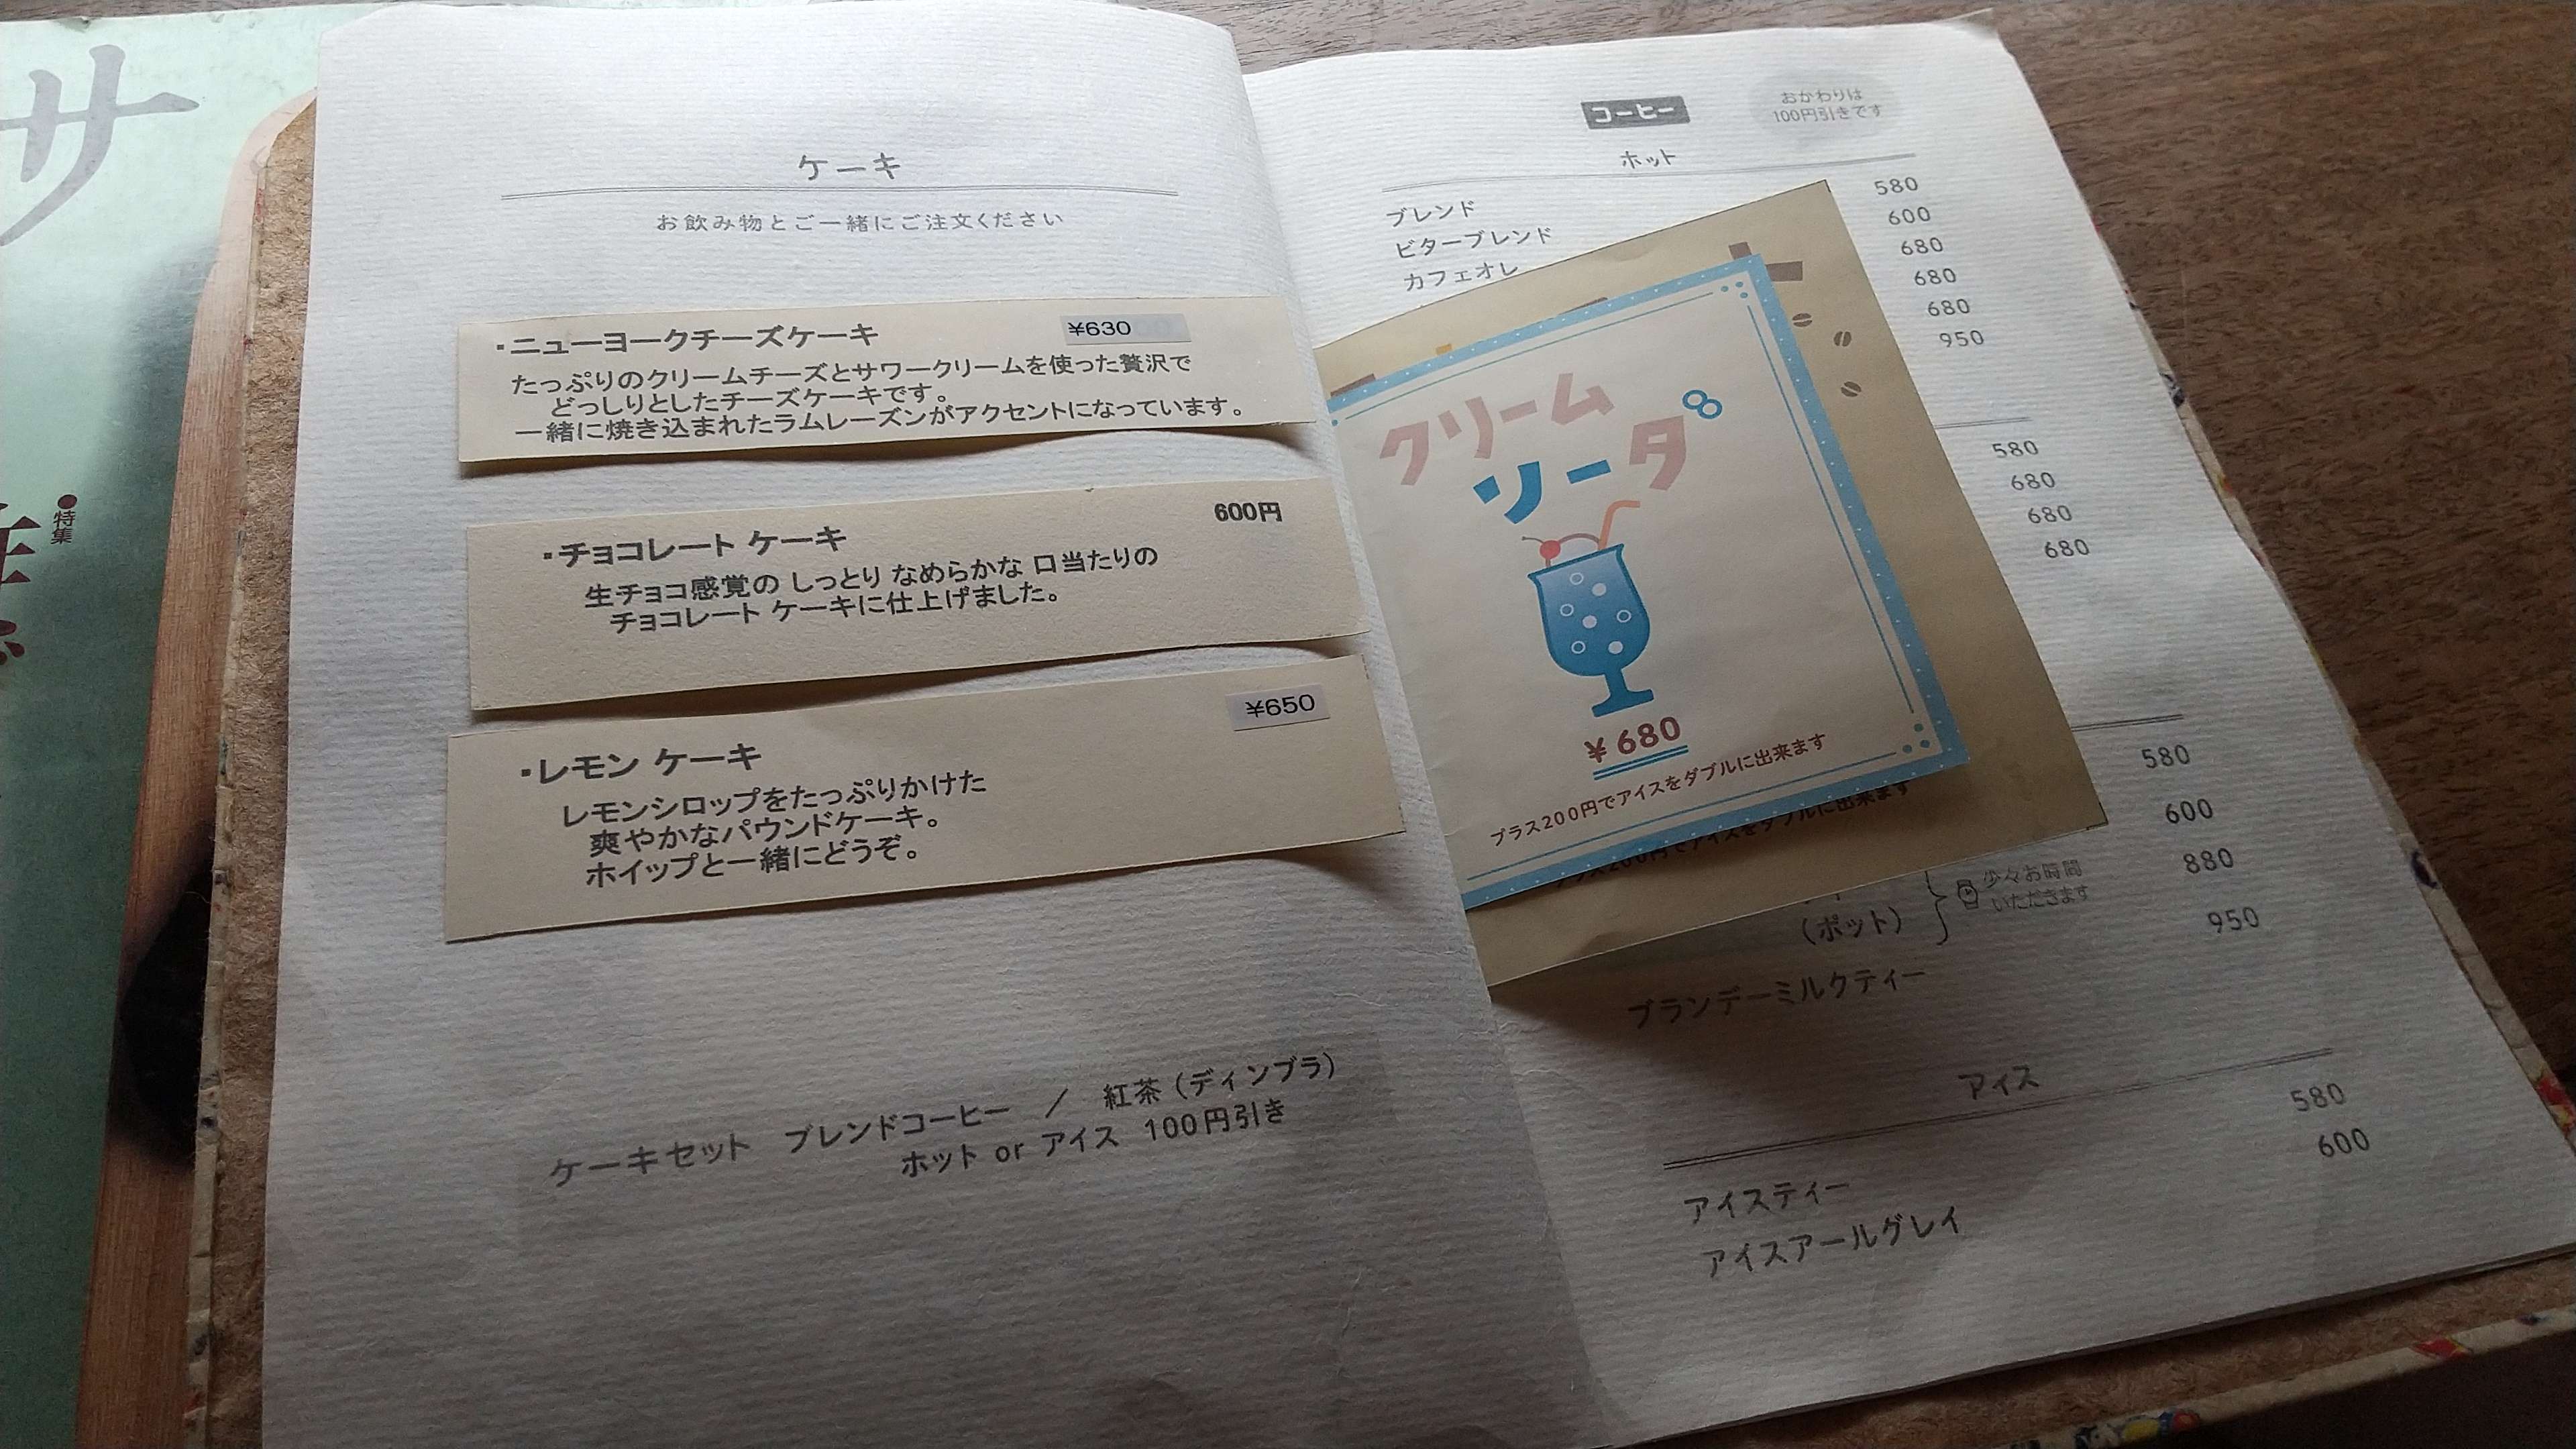 サ
特集
ケーキ
お飲み物とご一緒にご注文ください
・ニューヨークチーズケーキ ¥630
たっぷりのクリームチーズとサワークリームを使った贅沢で
どっしりとしたチーズケーキです。
一緒に焼き込まれたラムレーズンがアクセントになっています。
600円
・チョコレート ケーキ
生チョコ感覚の しっとり なめらかな 口当たりの
チョコレート ケーキに仕上げました。
¥650
・レモン ケーキ
レモンシロップをたっぷりかけた
爽やかなパウンドケーキ。
ホイップと一緒にどうぞ。
ケーキセット ブレンドコーヒー / 紅茶(ディンブラ)
ホット or アイス 100円引き
コーヒー
おかわりは
100円引きです
ホット
ブレンド 580
ビターブレンド 600
カフェオレ 680
680
680
950
クリーム
ソーダ
¥680
プラス200円でアイスをダブルに出来ます
プラス200円でアイスをダブルに出来ます
580
680
680
680
580
600
880
(ポット)
少々お時間
いただきます
ブランデーミルクティー 950
アイス
アイスティー 580
アイスアールグレイ 600